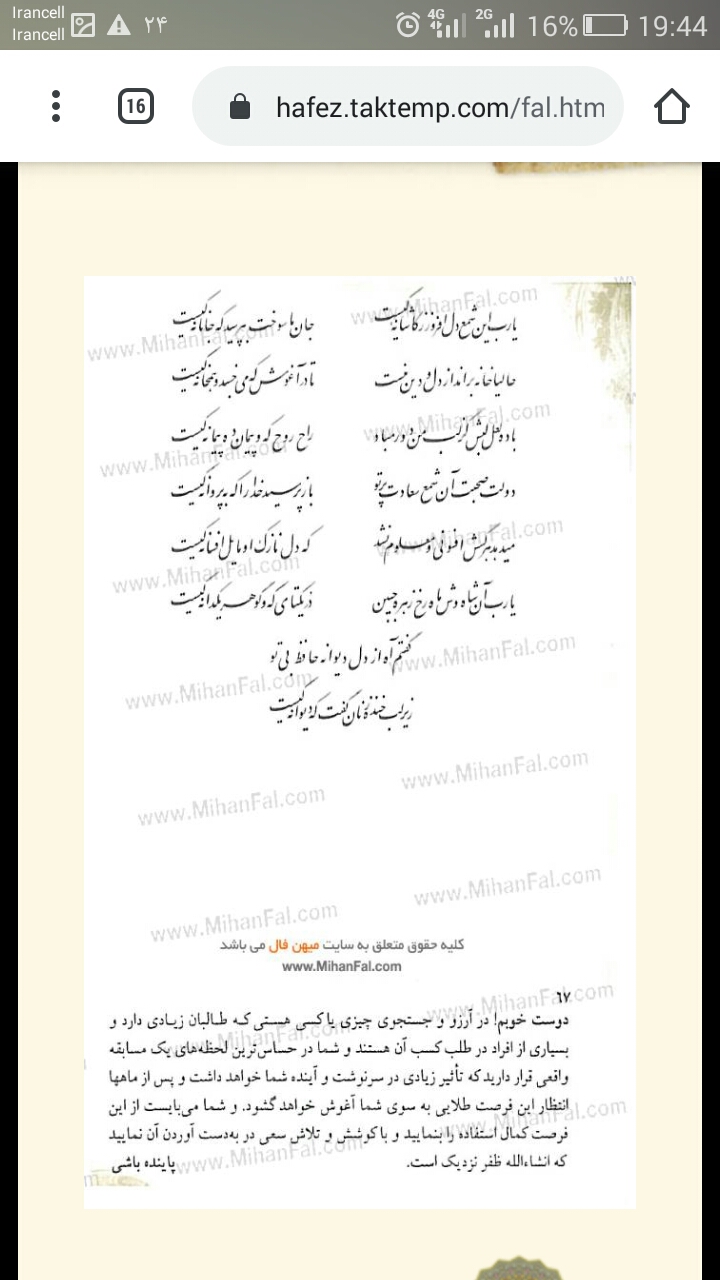 Irancell
Irancell
۲۴
4G
2G
16%
19:44
16
hafez.taktemp.com/fal.htm
یارب این شمع دل افروز ز کاشانه کیست
جان ما سوخت بپرسید که جانانه کیست
حالیا خانه برانداز دل و دین منست
تا در آغوش که می‌خسبد و همخانه کیست
باده لعل لبش کز لب من دور مباد
راح روح که و پیمان ده پیمانه کیست
دولت صحبت آن شمع سعادت پرتو
باز پرسید خدا را که به پروانه کیست
میدمد هر کسش افسونی و معلوم نشد
که دل نازک او مایل افسانه کیست
یارب آن شاه وش ماه رخ زهره جبین
در یکتای که و گوهر یکدانه کیست
گفتم آه از دل دیوانه حافظ بی تو
زیر لب خنده زنان گفت که دیوانه کیست
www.MihanFal.com
www.MihanFal.com
www.MihanFal.com
www.MihanFal.com
www.MihanFal.com
www.MihanFal.com
www.MihanFal.com
www.MihanFal.com
www.MihanFal.com
www.MihanFal.com
www.MihanFal.com
www.MihanFal.com
کلیه حقوق متعلق به سایت میهن فال می باشد
www.MihanFal.com
۶۷
دوست خوبم! در آرزو و جستجوی چیزی یا کسی هستی که طالبان زیادی دارد و
بسیاری از افراد در طلب کسب آن هستند و شما در حساس‌ترین لحظه‌های یک مسابقه
واقعی قرار دارید که تأثیر زیادی در سرنوشت و آینده شما خواهد داشت و پس از ماهها
انتظار این فرصت طلایی به سوی شما آغوش خواهد گشود. و شما می‌بایست از این
فرصت کمال استفاده را بنمایید و با کوشش و تلاش سعی در به‌دست آوردن آن نمایید
که انشاءالله ظفر نزدیک است. پاینده باشی
www.MihanFal.com
www.MihanFal.com
www.MihanFal.com